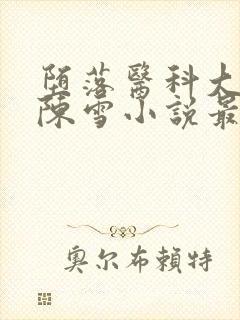 堕落醫科大
陳雪小說最
奧尔布賴特